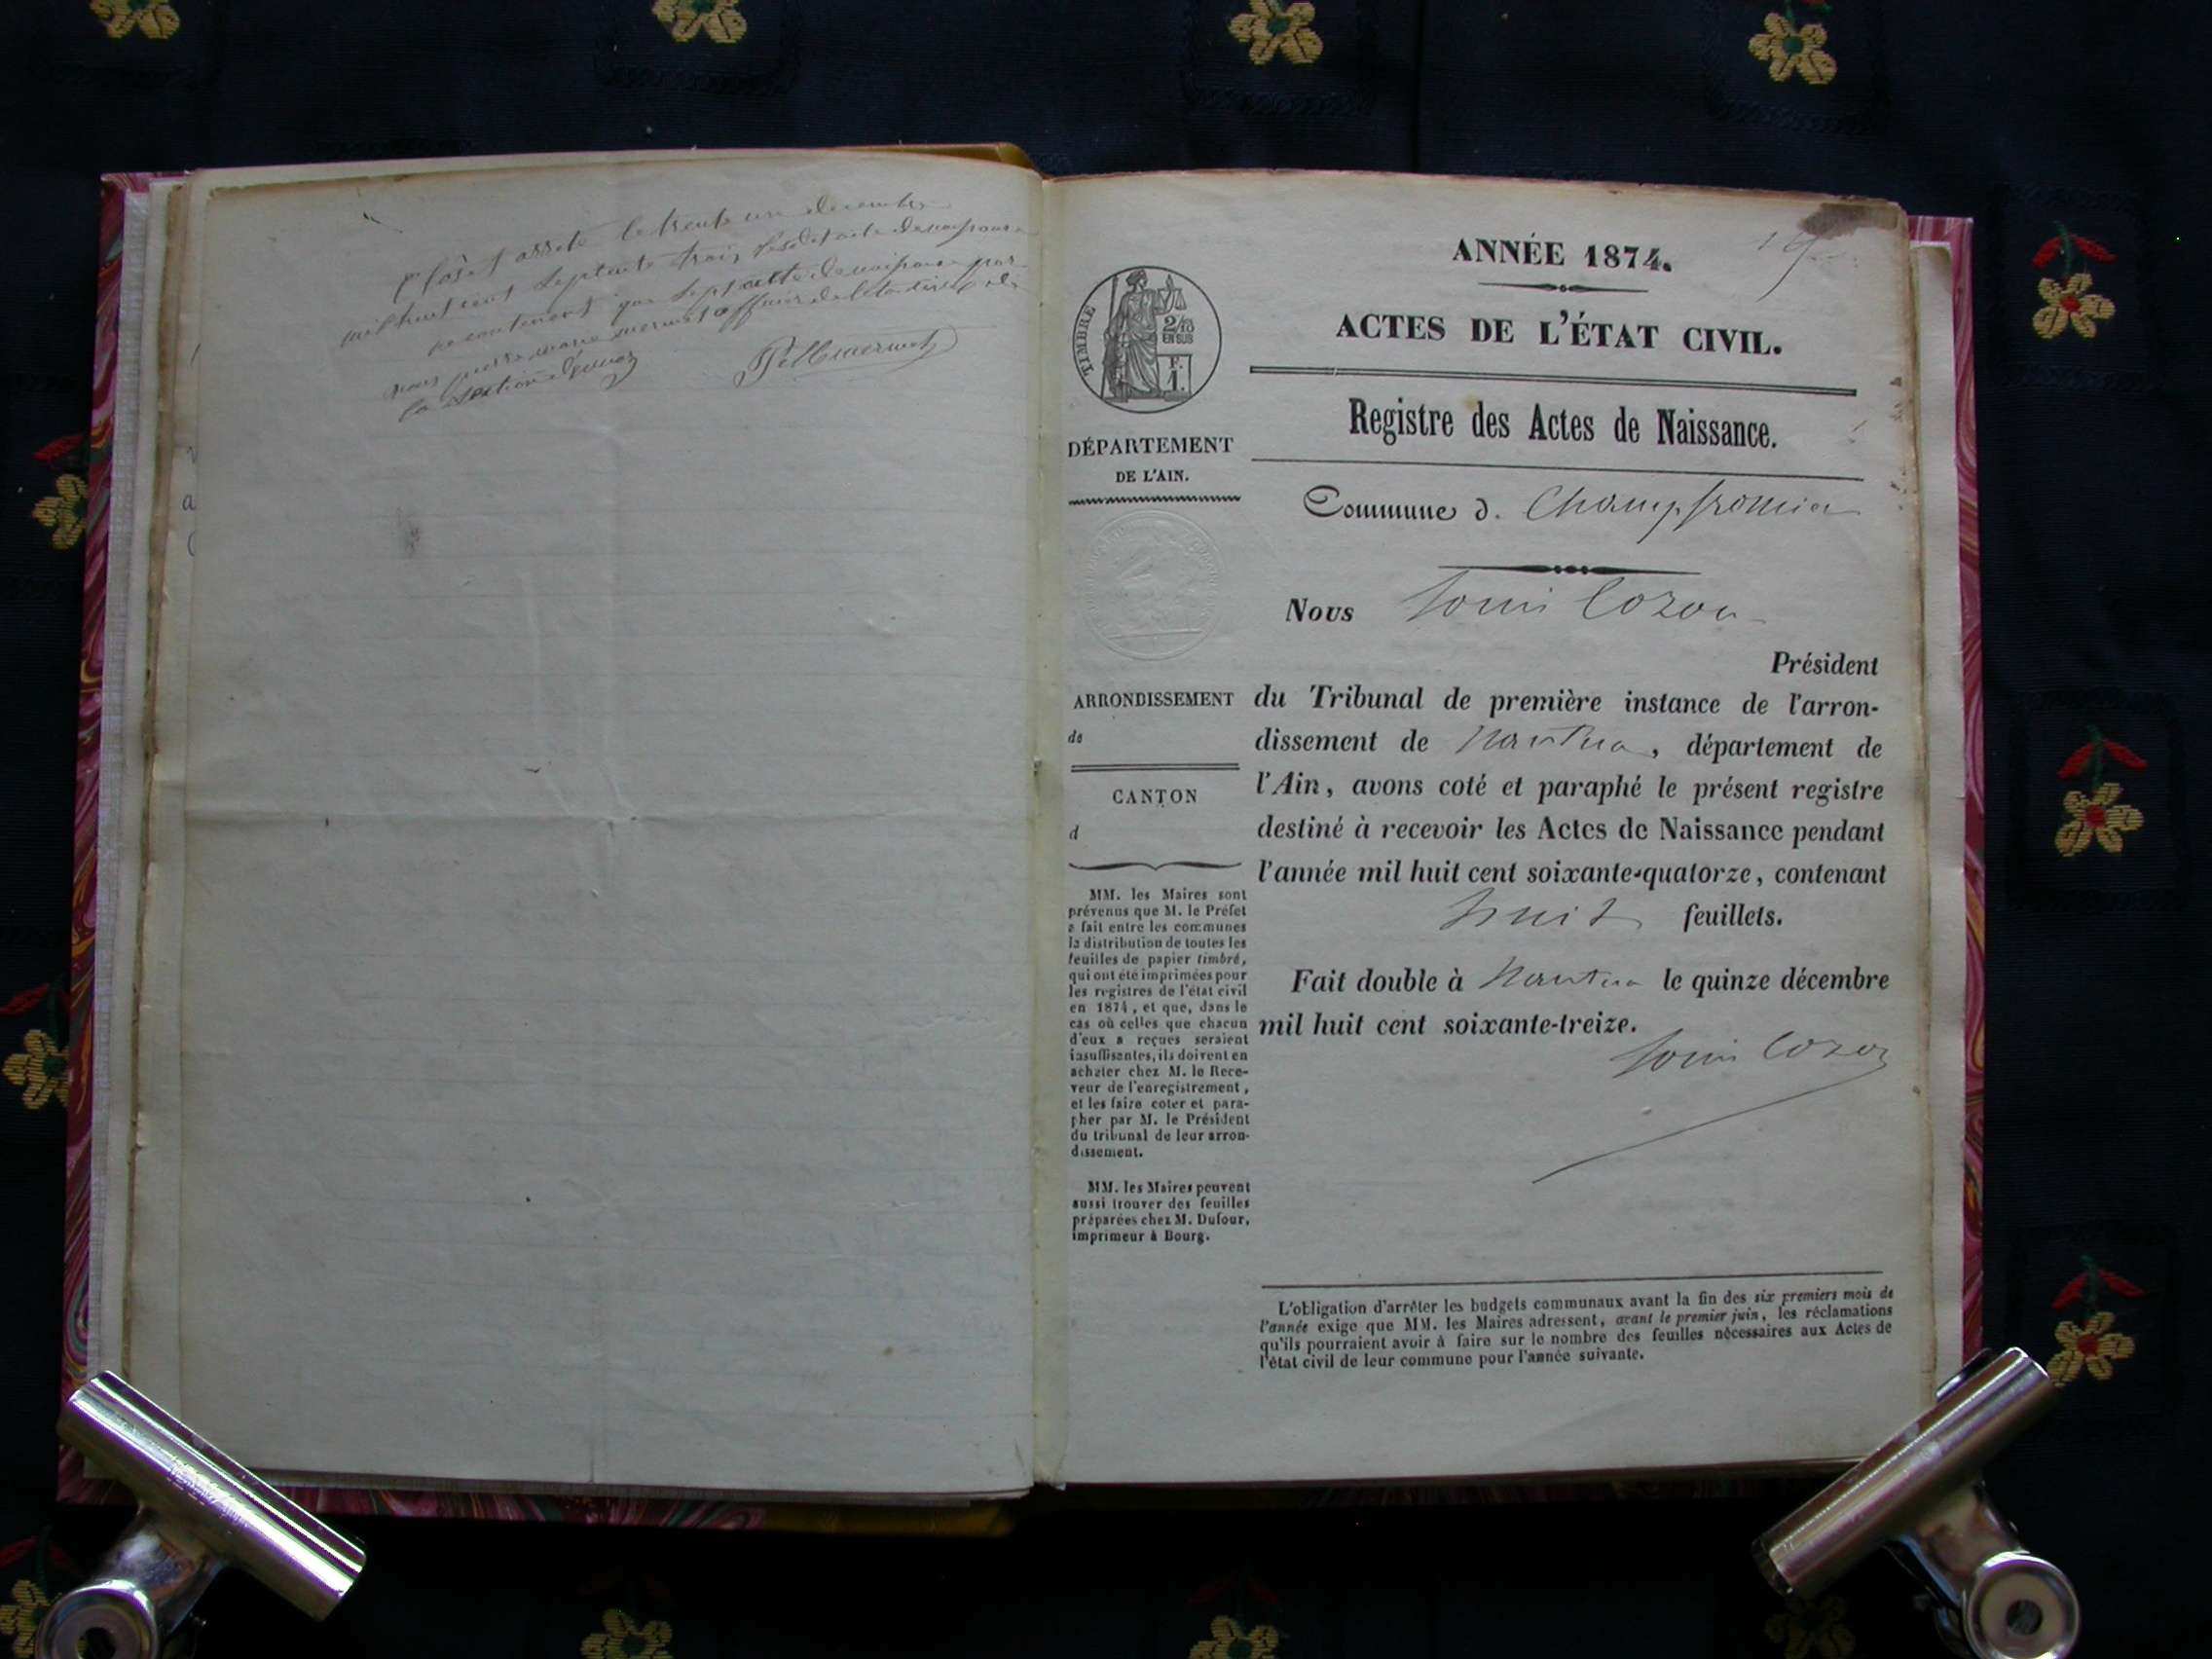 Clos et arrêté le trente un decembre
mil huit cent septante trois
ne contenant que sept acte de naissance par
nous pierre marie mermet officier de l'etat civil de
la section
PMmermet
ANNÉE 1874.
ACTES DE L'ÉTAT CIVIL.
Registre des Actes de Naissance.
Commune d. Champfromier
Nous Louis Cozon
Président
du Tribunal de première instance de l'arron-
dissement de Nantua, département de
l'Ain, avons coté et paraphé le présent registre
destiné à recevoir les Actes de Naissance pendant
l'année mil huit cent soixante-quatorze, contenant
huit feuillets.
Fait double à Nantua le quinze décembre
mil huit cent soixante-treize.
Louis Cozon
L'obligation d'arrêter les budgets communaux avant la fin des six premiers mois de
l'année exige que MM. les Maires adressent, avant le premier juin, les réclamations
qu'ils pourraient avoir à faire sur le nombre des feuilles nécessaires aux Actes de
l'état civil de leur commune pour l'année suivante.
TIMBRE
2/10
EN SUS
F.
1.
DÉPARTEMENT
DE L'AIN.
ARRONDISSEMENT
de
CANTON
d
MM. les Maires sont
prévenus que M. le Préfet
a fait entre les communes
la distribution de toutes les
feuilles de papier timbré,
qui ont été imprimées pour
les registres de l'état civil
en 1874, et que, dans le
cas où celles que chacun
d'eux a reçues seraient
insuffisantes, ils doivent en
acheter chez M. le Rece-
veur de l'enregistrement,
et les faire coter et para-
pher par M. le Président
du tribunal de leur arron-
dissement.
MM. les Maires peuvent
aussi trouver des feuilles
préparées chez M. Dufour,
imprimeur à Bourg.